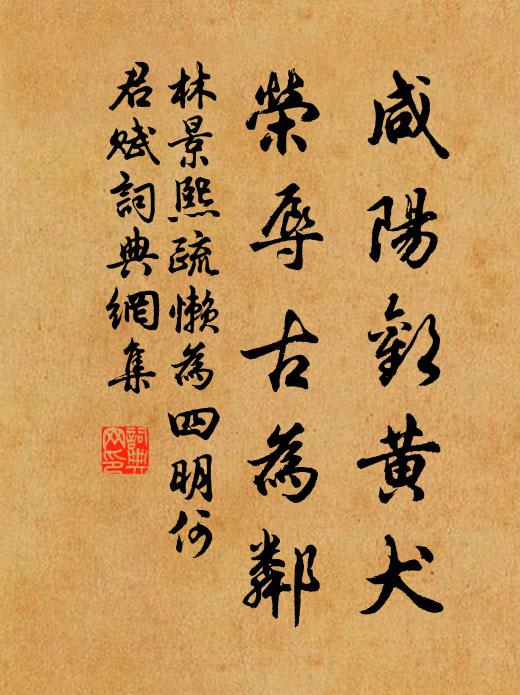 咸陽歎黃犬
榮辱古為鄰
林景熙疏懶為四明何
君賦詞典網集
詞典
网印